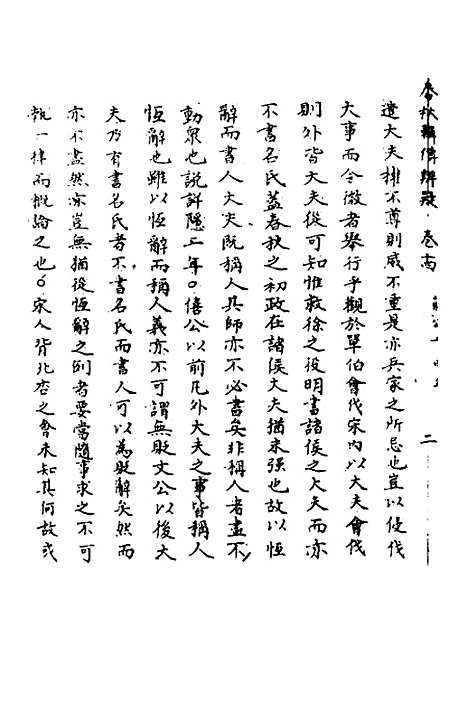 春秋輯傳辨疑 卷十四 二
遣大夫權不尊則威不重是亦兵家之所忌也豈以侵伐
大事而令微者舉行乎觀於單伯會伐宋內以大夫會伐
則外皆大夫從可知惟救徐之役明書諸侯之大夫而亦
不書名氏蓋春秋之初政在諸侯大夫猶未强也故以恒
辭而書人大夫既稱人其師亦不必書矣非稱人者盡不
動衆也說詳隱二年○僖公以前凡外大夫之事皆稱人
恒辭也雖以恒辭而稱人義亦不可謂無貶文公以後大
夫乃有書名氏者不書名氏而書人可以為貶辭矣然而
亦不盡然亦豈無猶從恒辭之例者要當隨事求之不可
執一律而概論之也○宋人背北杏之會未知其何故或